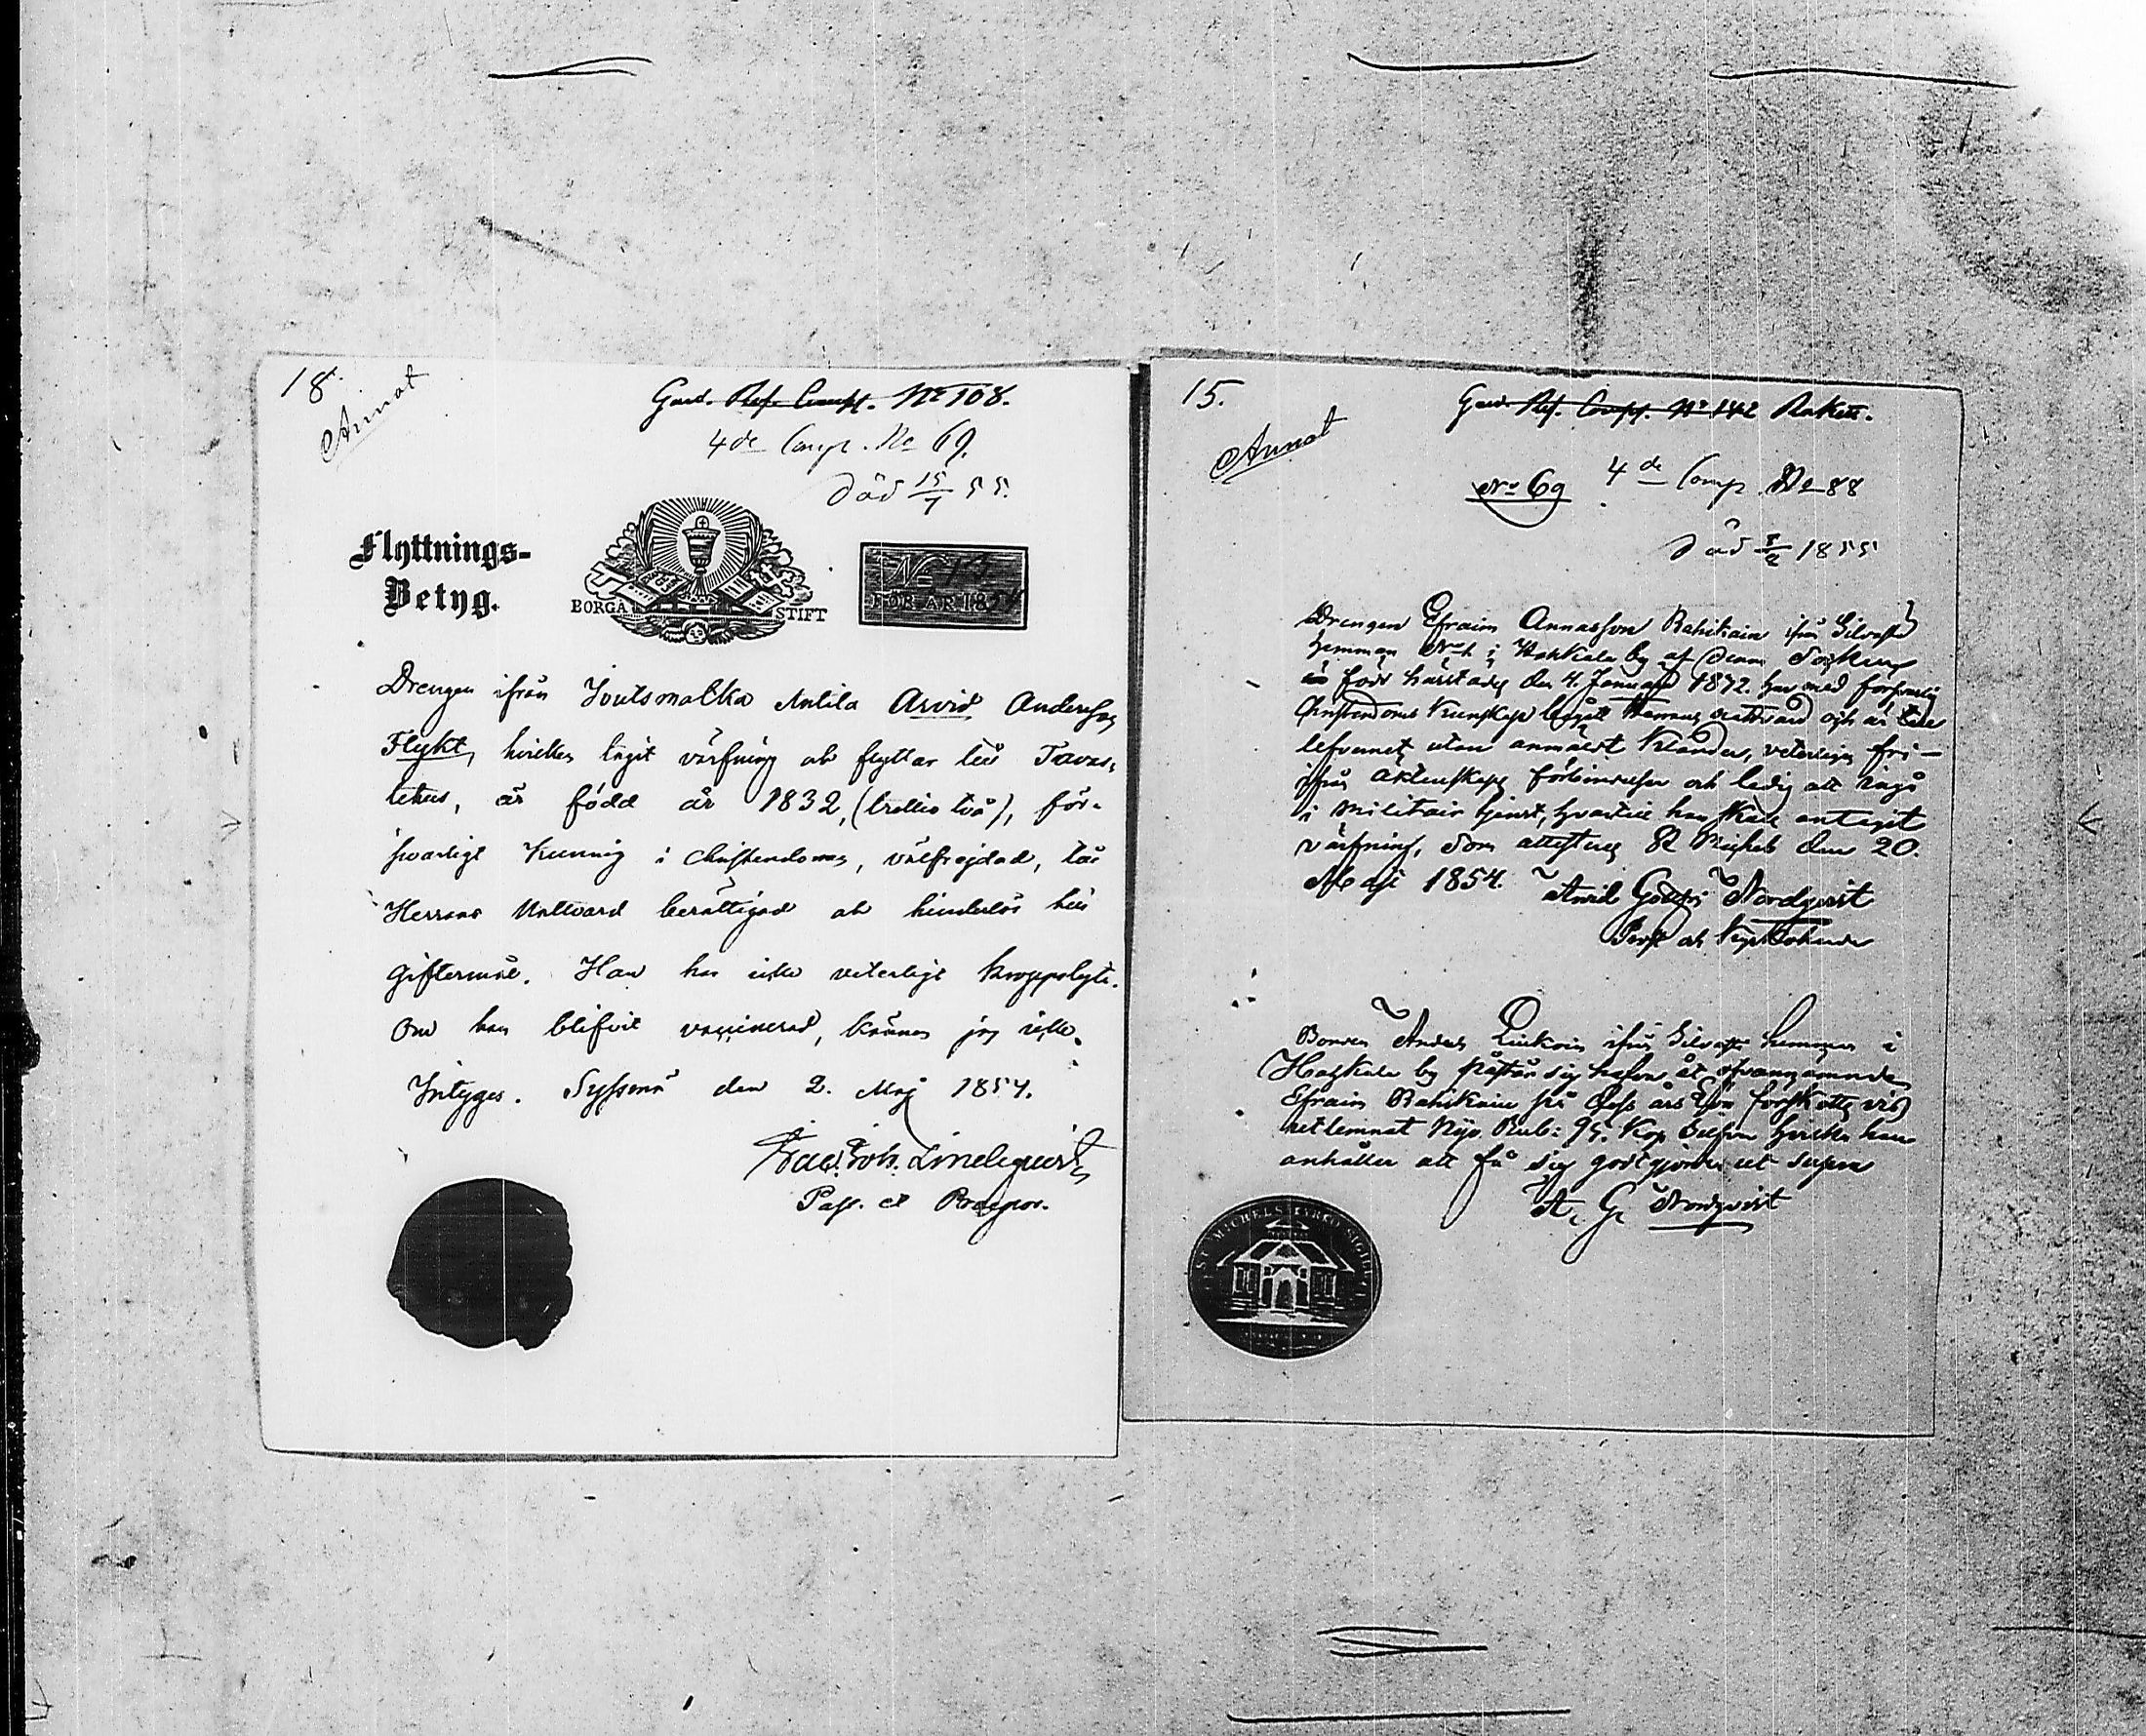 18.
Annat
Gard. Res. Comp. No 108.
4de Comp. No 69.
död 15/7 55.
Flyttnings-
Betyg.
BORGÅ STIFT
No 13
FÖR ÅR 1854
Drengen ifrån Joutsmalka Antila Arvid Andersson
Flykt, hvilken tagit värfning och flyttar till Tavas-
tehus, är född år 1832, (trettio två), för-
svarligt kunnig i christendomen, välfrejdad, till
Herrans Nattvard berättigad och hinderlös till
giftermål. Han har icke veterligt kroppslyte.
Om han blifvit vaccinerad, känner jag icke.
Intygas. Syssmä den 2. Maj 1854.
Joh. Lindequist,
Past. et Praepos.
15.
Annat
Gard. Res. Comp. No 142 Rakett.
No 69
4de Comp No 88
död 5/2 1855
Drengen Efraim Annasson Rahikain ifrån
hemman No 2 i by af denna Socken
är född härstädes den 4. Januarii 1832. har med försvarlig
Christendoms kunskap begått Herrans nattvard och är till
lefvernet utan anmärkt klander, veterligen fri
ifrån äktenskaps förbindelser och ledig att ingå
i militair tjenst, hvartill han skall antagit
värfning, som attesteras St Michels den 20.
Maji 1854. Arvid Nordqvist
Prost och Kyrkoherde
Bonden Anders ifrån hemman i
by påstår sig hafva åt ofvannämnde
Efraim Rahikain på dess års lön förskottsvis
utlemnat Rub: 95. Kop Silfver hvilka han
anhåller att få sig godtgjorda ut supra
A. G. Nordqvist
ST MICHELS KYRKO SIGILL